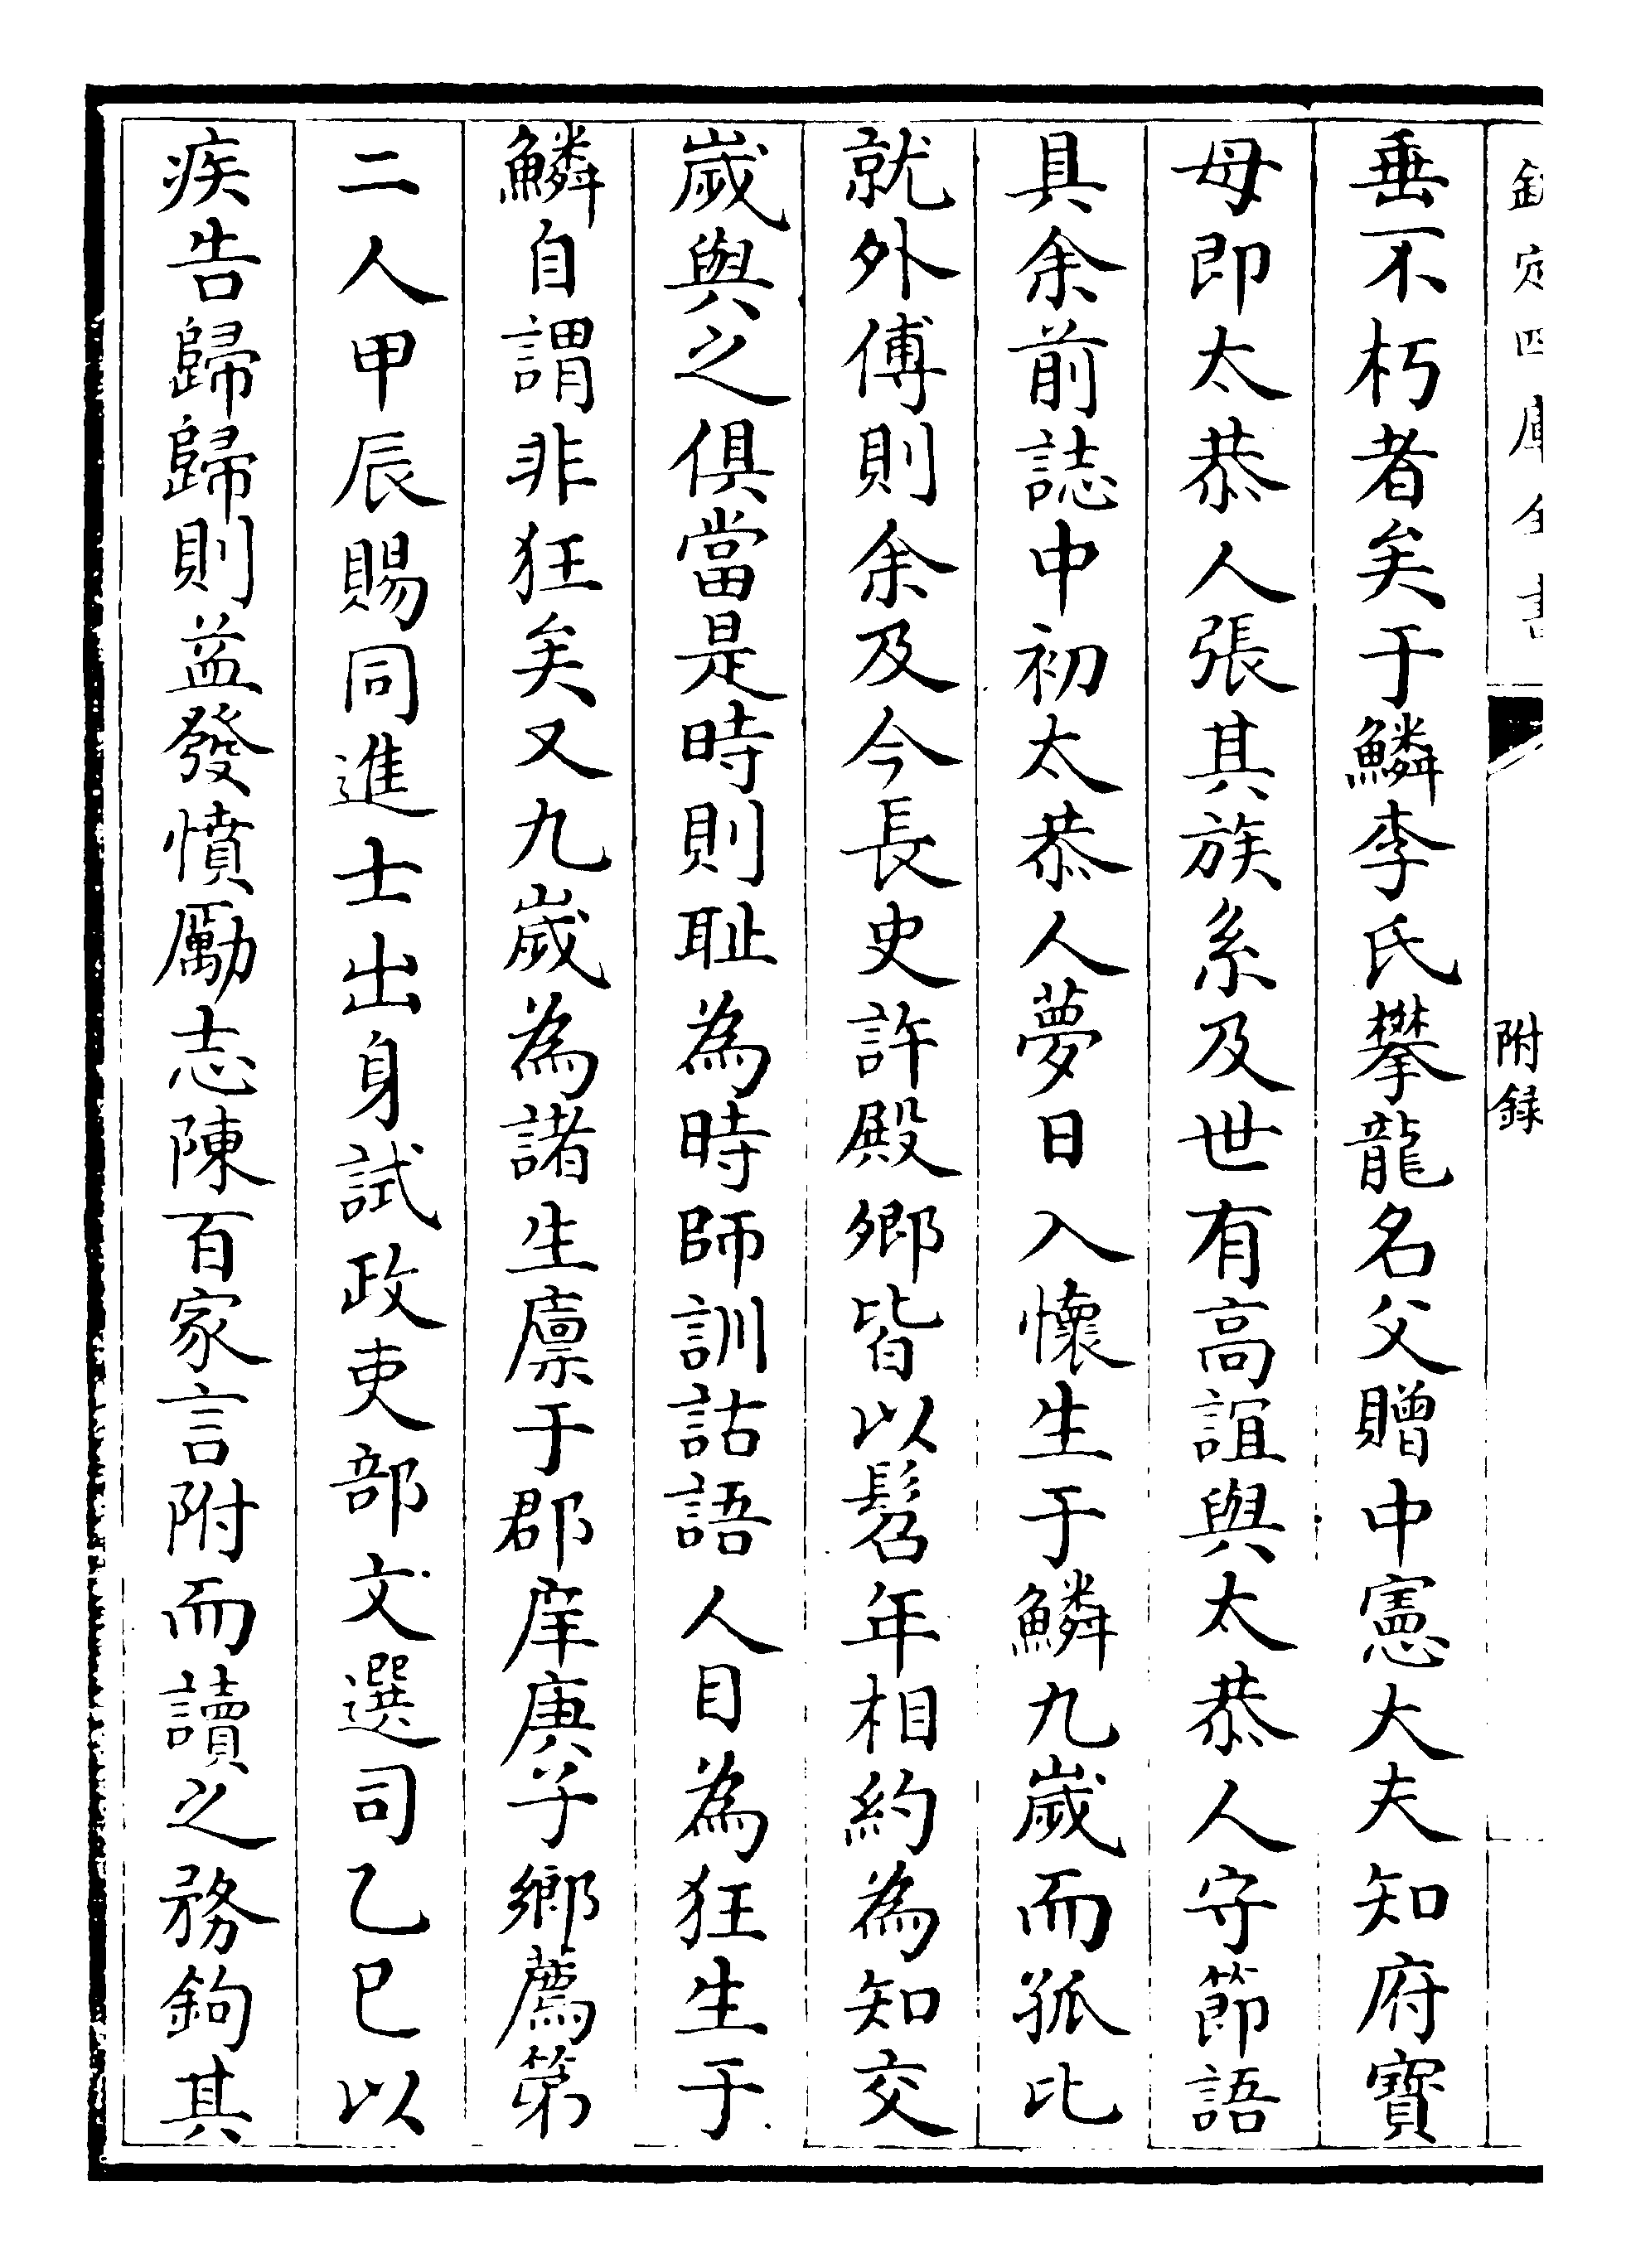 欽定四庫全書
附録
垂不朽者矣于鱗李氏攀龍名父贈中憲大夫知府寶
母即太恭人張其族系及世有高誼與太恭人守節語
具余前誌中初太恭人夢日入懷生于鱗九歲而孤比
就外傅則余及今長史許殿卿皆以髫年相約為知交
歲與之俱當是時則耻為時師訓詁語人目為狂生于
鱗自謂非狂矣又九歲為諸生廪于郡庠庚子鄉薦第
二人甲辰賜同進士出身試政吏部文選司乙巳以
疾告歸歸則益發憤勵志陳百家言附而讀之務鉤其